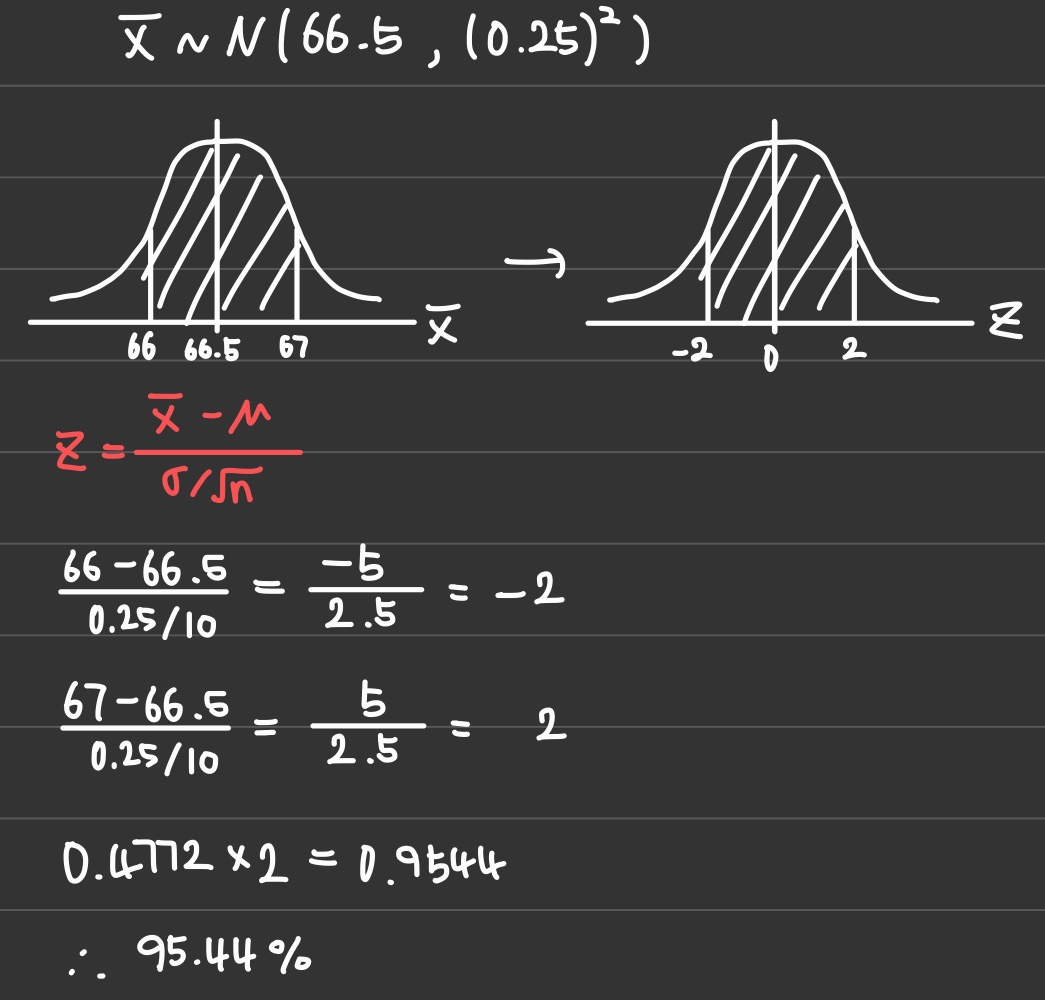 x̄ ~ N(66.5, (0.25)²)
66 66.5 67 x̄ → -2 0 2 Z
Z = (x̄ - μ) / (σ/√n)
(66-66.5) / (0.25/10) = -5 / 2.5 = -2
(67-66.5) / (0.25/10) = 5 / 2.5 = 2
0.4772 × 2 = 0.9544
∴ 95.44%